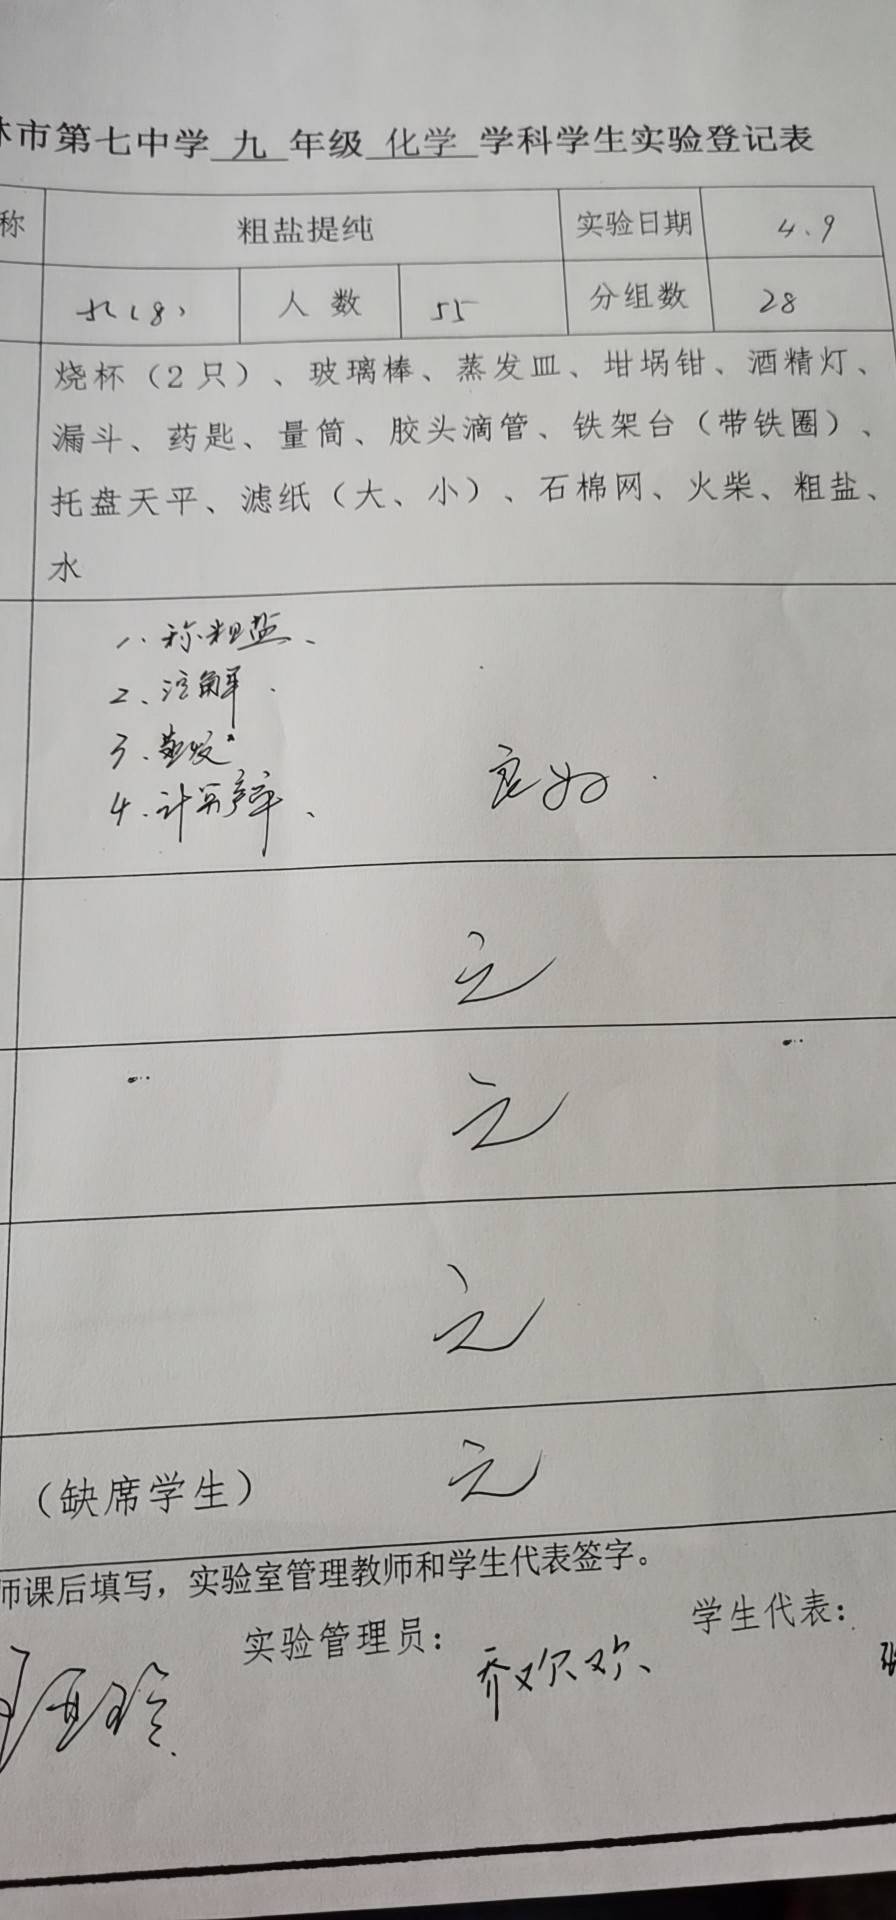 市第七中学 九 年级 化学 学科学生实验登记表
称 粗盐提纯 实验日期 4.9
九(8) 人数 55 分组数 28
烧杯（2只）、玻璃棒、蒸发皿、坩埚钳、酒精灯、
漏斗、药匙、量筒、胶头滴管、铁架台（带铁圈）、
托盘天平、滤纸（大、小）、石棉网、火柴、粗盐、
水
1.称粗盐、
2、解.
3.蒸发
4.计算产率、 良好.
无
无
无
（缺席学生） 无
师课后填写，实验室管理教师和学生代表签字。
实验管理员： 乔欢欢、 学生代表：